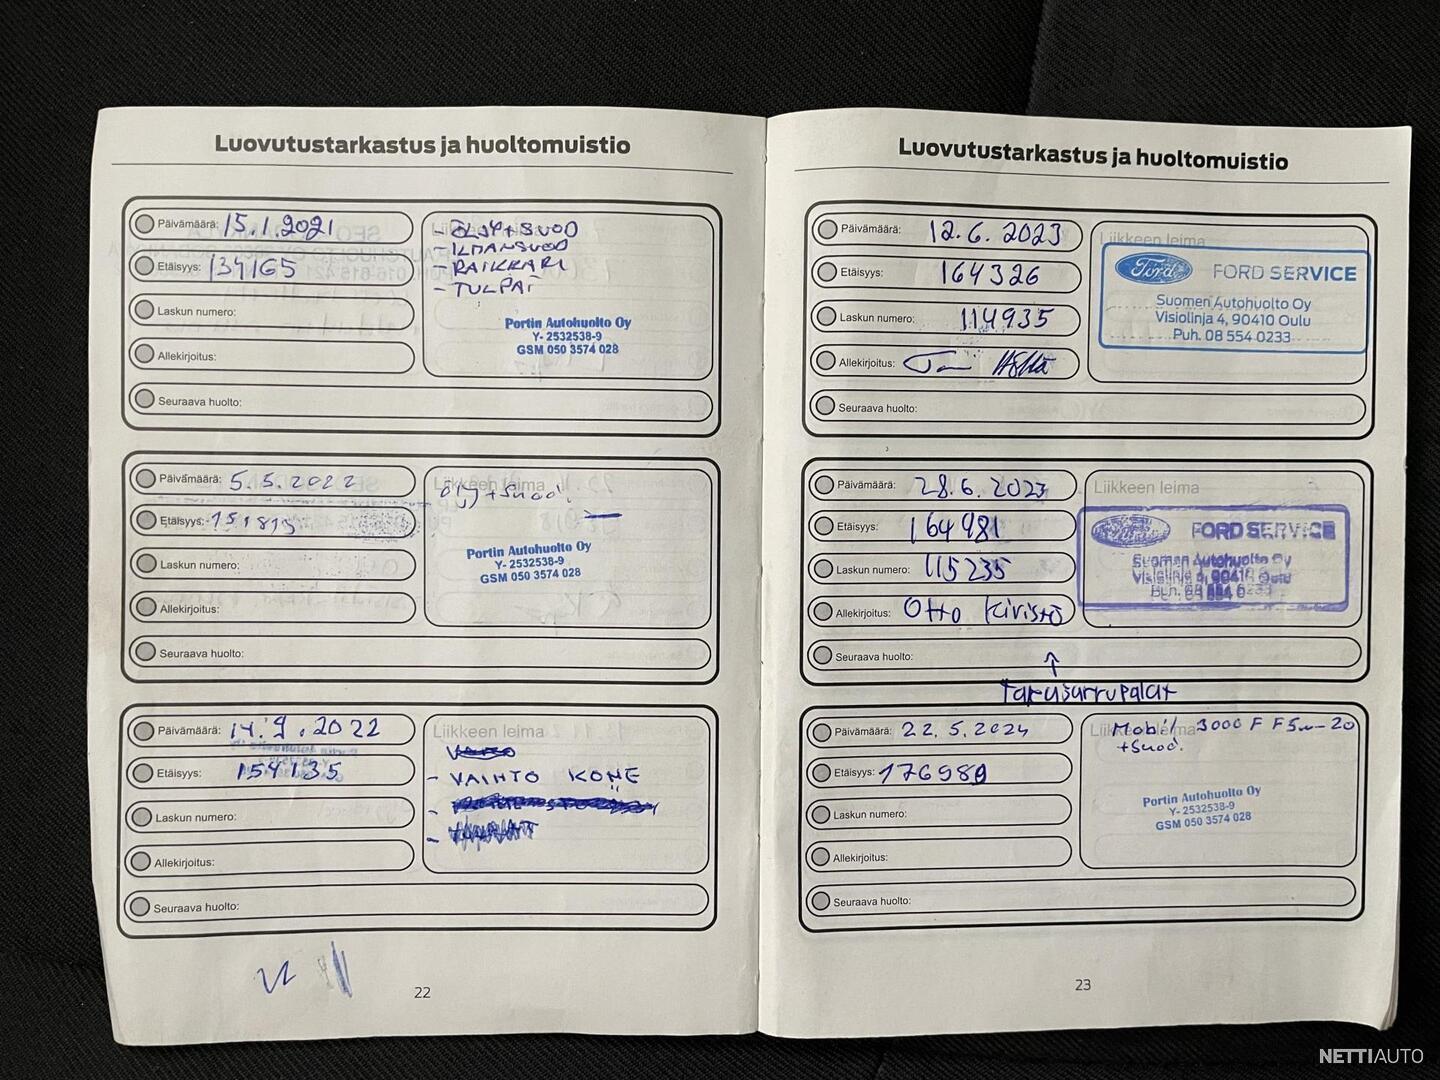 Luovutustarkastus ja huoltomuistio
Päivämäärä: 15.1.2021
Etäisyys: 134165
Laskun numero:
Allekirjoitus:
Seuraava huolto:
- ÖLJY+SUOD
- ILMANSUOD
- RAIKKARI
- TULPAT
Portin Autohuolto Oy
Y- 2532538-9
GSM 050 3574 028
Päivämäärä: 5.5.2022
Etäisyys: 151815
Laskun numero:
Allekirjoitus:
Seuraava huolto:
Liikkeen leima
öljy+suod.
Portin Autohuolto Oy
Y- 2532538-9
GSM 050 3574 028
Päivämäärä: 14.9.2022
Etäisyys: 154135
Laskun numero:
Allekirjoitus:
Seuraava huolto:
Liikkeen leima
- VAIHTO KONE
22
Luovutustarkastus ja huoltomuistio
Päivämäärä: 12.6.2023
Etäisyys: 164326
Laskun numero: 114935
Allekirjoitus:
Seuraava huolto:
Liikkeen leima
Ford FORD SERVICE
Suomen Autohuolto Oy
Visiolinja 4, 90410 Oulu
Puh. 08 554 0233
Päivämäärä: 28.6.2023
Etäisyys: 164981
Laskun numero: 115235
Allekirjoitus: Otto Kivistö
Seuraava huolto:
↑
Takajarrupalat
Liikkeen leima
Ford FORD SERVICE
Suomen Autohuolto Oy
Visiolinja 4, 90410 Oulu
Puh. 08 554 0233
Päivämäärä: 22.5.2024
Etäisyys: 176989
Laskun numero:
Allekirjoitus:
Seuraava huolto:
Liikkeen leima
Mobil 3000 F F 5w-20
+suod.
Portin Autohuolto Oy
Y- 2532538-9
GSM 050 3574 028
23
NETTIAUTO